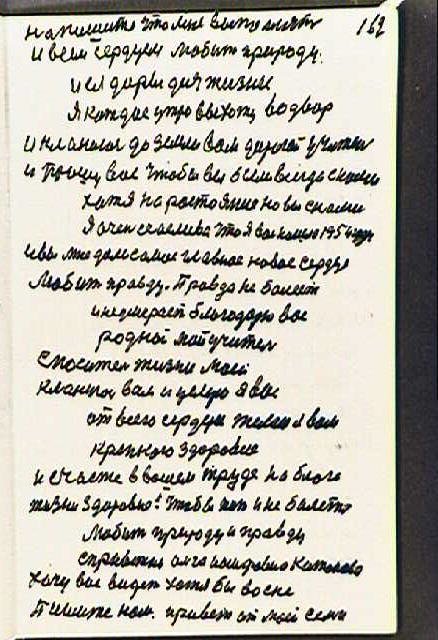 напишите что мне выполнять 162
и всем сердцем любить природу.
и ея дары для жизни
Я каждое утро выхожу во двор
и кланаюс до земли вам дорогой учител
и прошу вас чтобы вы были всегда с нами
хотя на ростояние но вы с нами
Я очен счаслива что я вас нашла 1954 году
и вы мне дали самое главное новое сердце
Любит правду. Правда не болеет
и неумерает благодарю вас
родной мой учител
Спосител жизни моей
кланаюс вам и цалую я вас
от всего сердца желаю я вам
крепкою здоровие
и счасте в вашем труде на благо
жизни здоровю чтобы нам и не болеть
Любит природу и правду
хочу вас видет хотя бы восне
Пишите нам. привет от моей семи